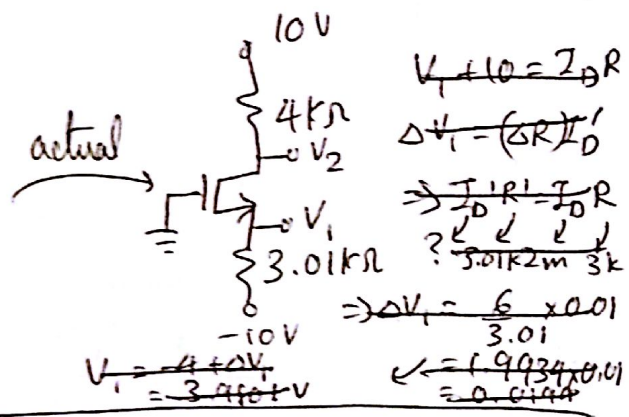 10 V
4kΩ
V₂
actual
V₁
3.01kΩ
-10V
V₁ + 10 = I_D R
ΔV₁ = (ΔR) I_D'
⇒ I_D' R' - I_D R
? 3.01k 2m 3k
⇒ ΔV₁ = 6/3.01 × 0.01
= 1.9934 × 0.01
= 0.0199
V₁ = -4 + ΔV₁